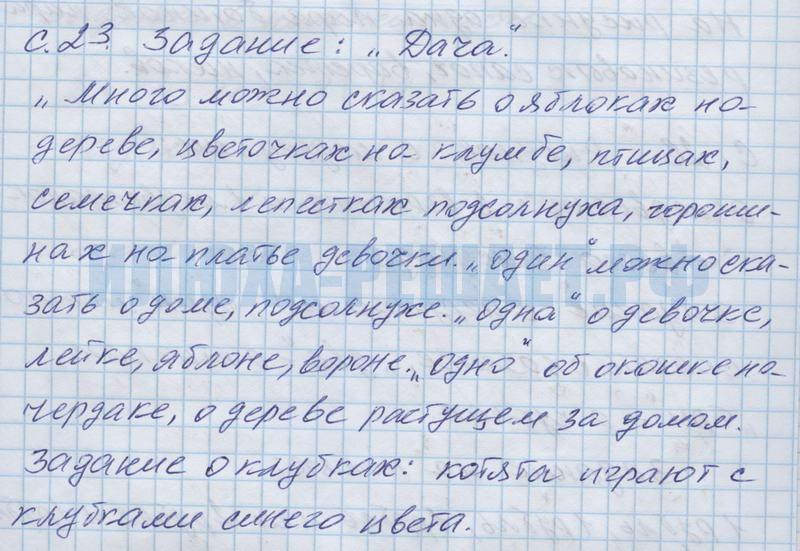 с.23. Задание: „Дача".
„Много можно сказать о яблоках на
дереве, цветочках на клумбе, птицах,
семечках, лепестках подсолнуха, гороши-
нах на платье девочки. „Один" можно ска-
зать о доме, подсолнухе. „Одна" о девочке,
лейке, яблоне, вороне. „Одно" об окошке на
чердаке, о дереве растущем за домом.
Задание о клубках: котята играют с
клубками синего цвета.